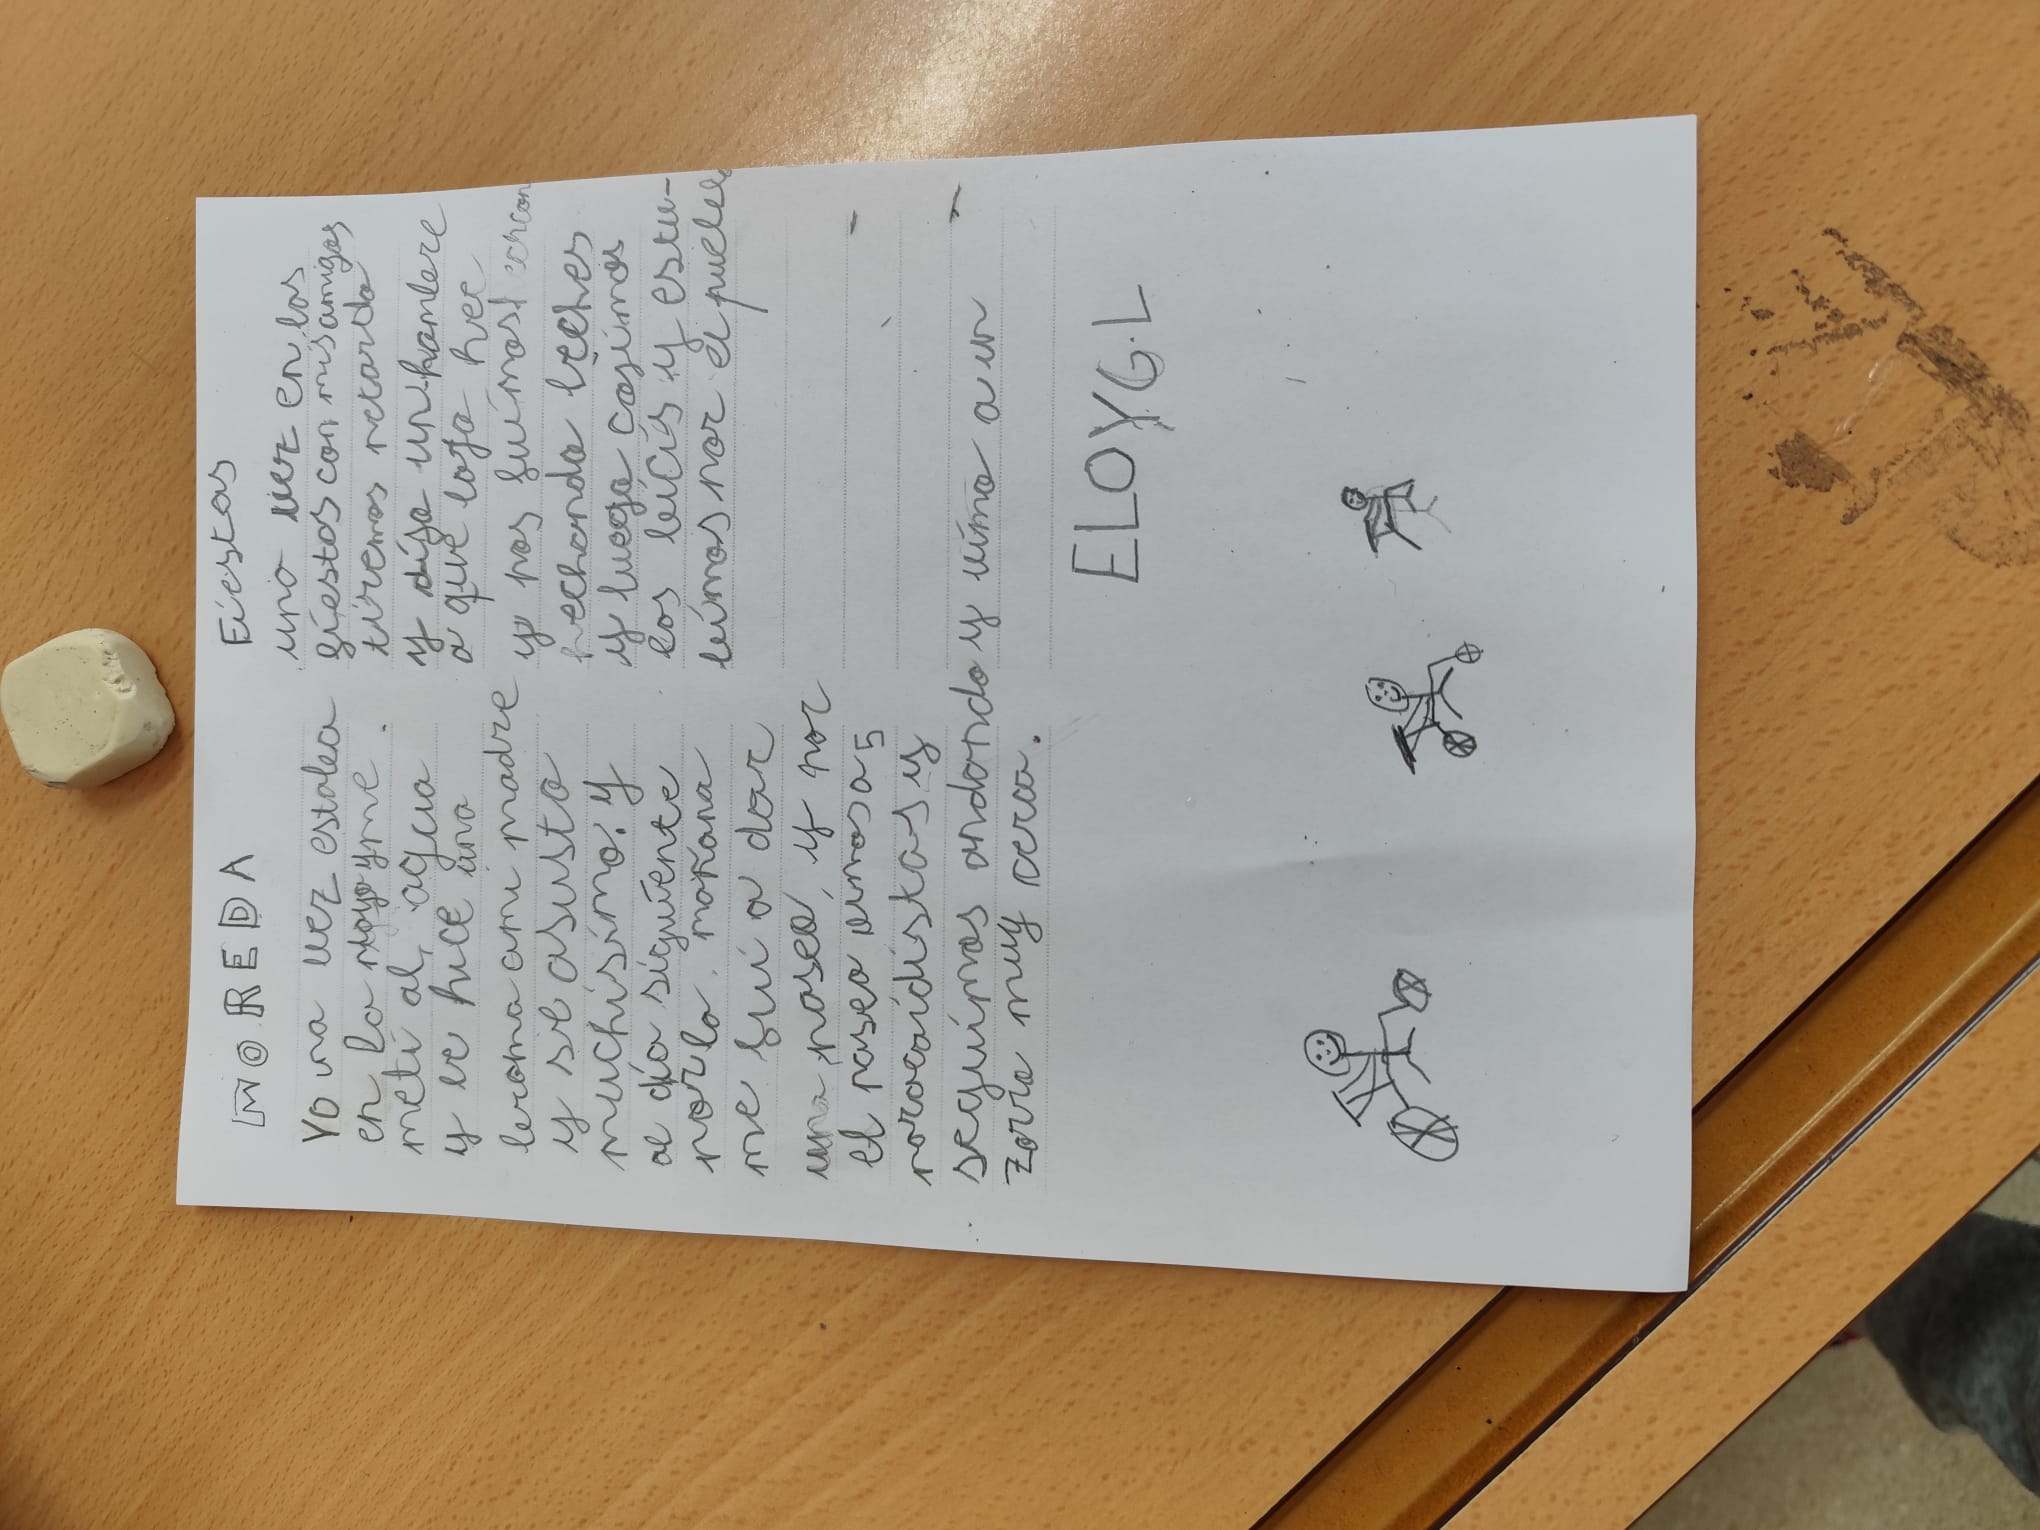 MOREDA
Yo una vez estaba
en la playa y me
metí al agua
y le hice una
broma a mi madre
y se asusto
muchisimo. y
al día siguiente
por la mañana
me fui a dar
una paseo, y por
el paseo vimos a 5
paracaidistas y
seguimos andando y vimo a un
zorro muy cerca.
Fiestas
una vez en las
fiestas con mis amigos
tiremos petardo
y dijo un hambre
a que loja hee
y nos fuimos
hechando leches
y luego cojimos
las bicis y estu-
bimos por el pueblo
ELOY G.L